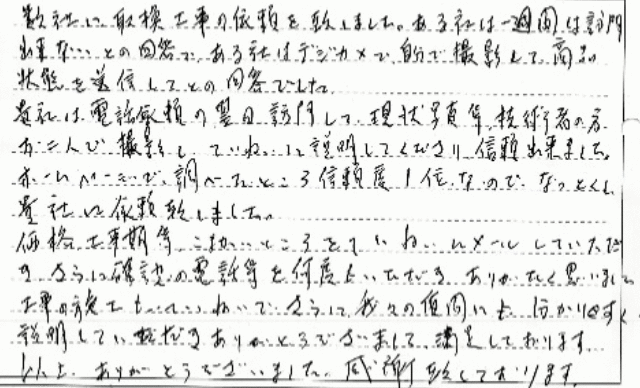 数社に取換工事の依頼を致しました。ある社は一週間は訪問
出来ない…との回答で、ある社はデジカメで自分で撮影して商品の
状態を送信してとの回答でした。
貴社は電話依頼の翌日訪問して、現状写真等、技術者の方
お二人で撮影していねいに説明してくださり信頼出来ました。
ホームページで調べたところ信頼度1位なのでなっとくし
貴社に依頼致しました。
価格工事期等こまかいところまでていねいにメールしていただ
きさらに確認の電話等を何度もいただき、ありがたく思いました
工事の施工もていねいでさらに我々の質問にも分かりやすく
説明していただきありがとうございまして、満足しております。
以上、ありがとうございました。感謝致しております